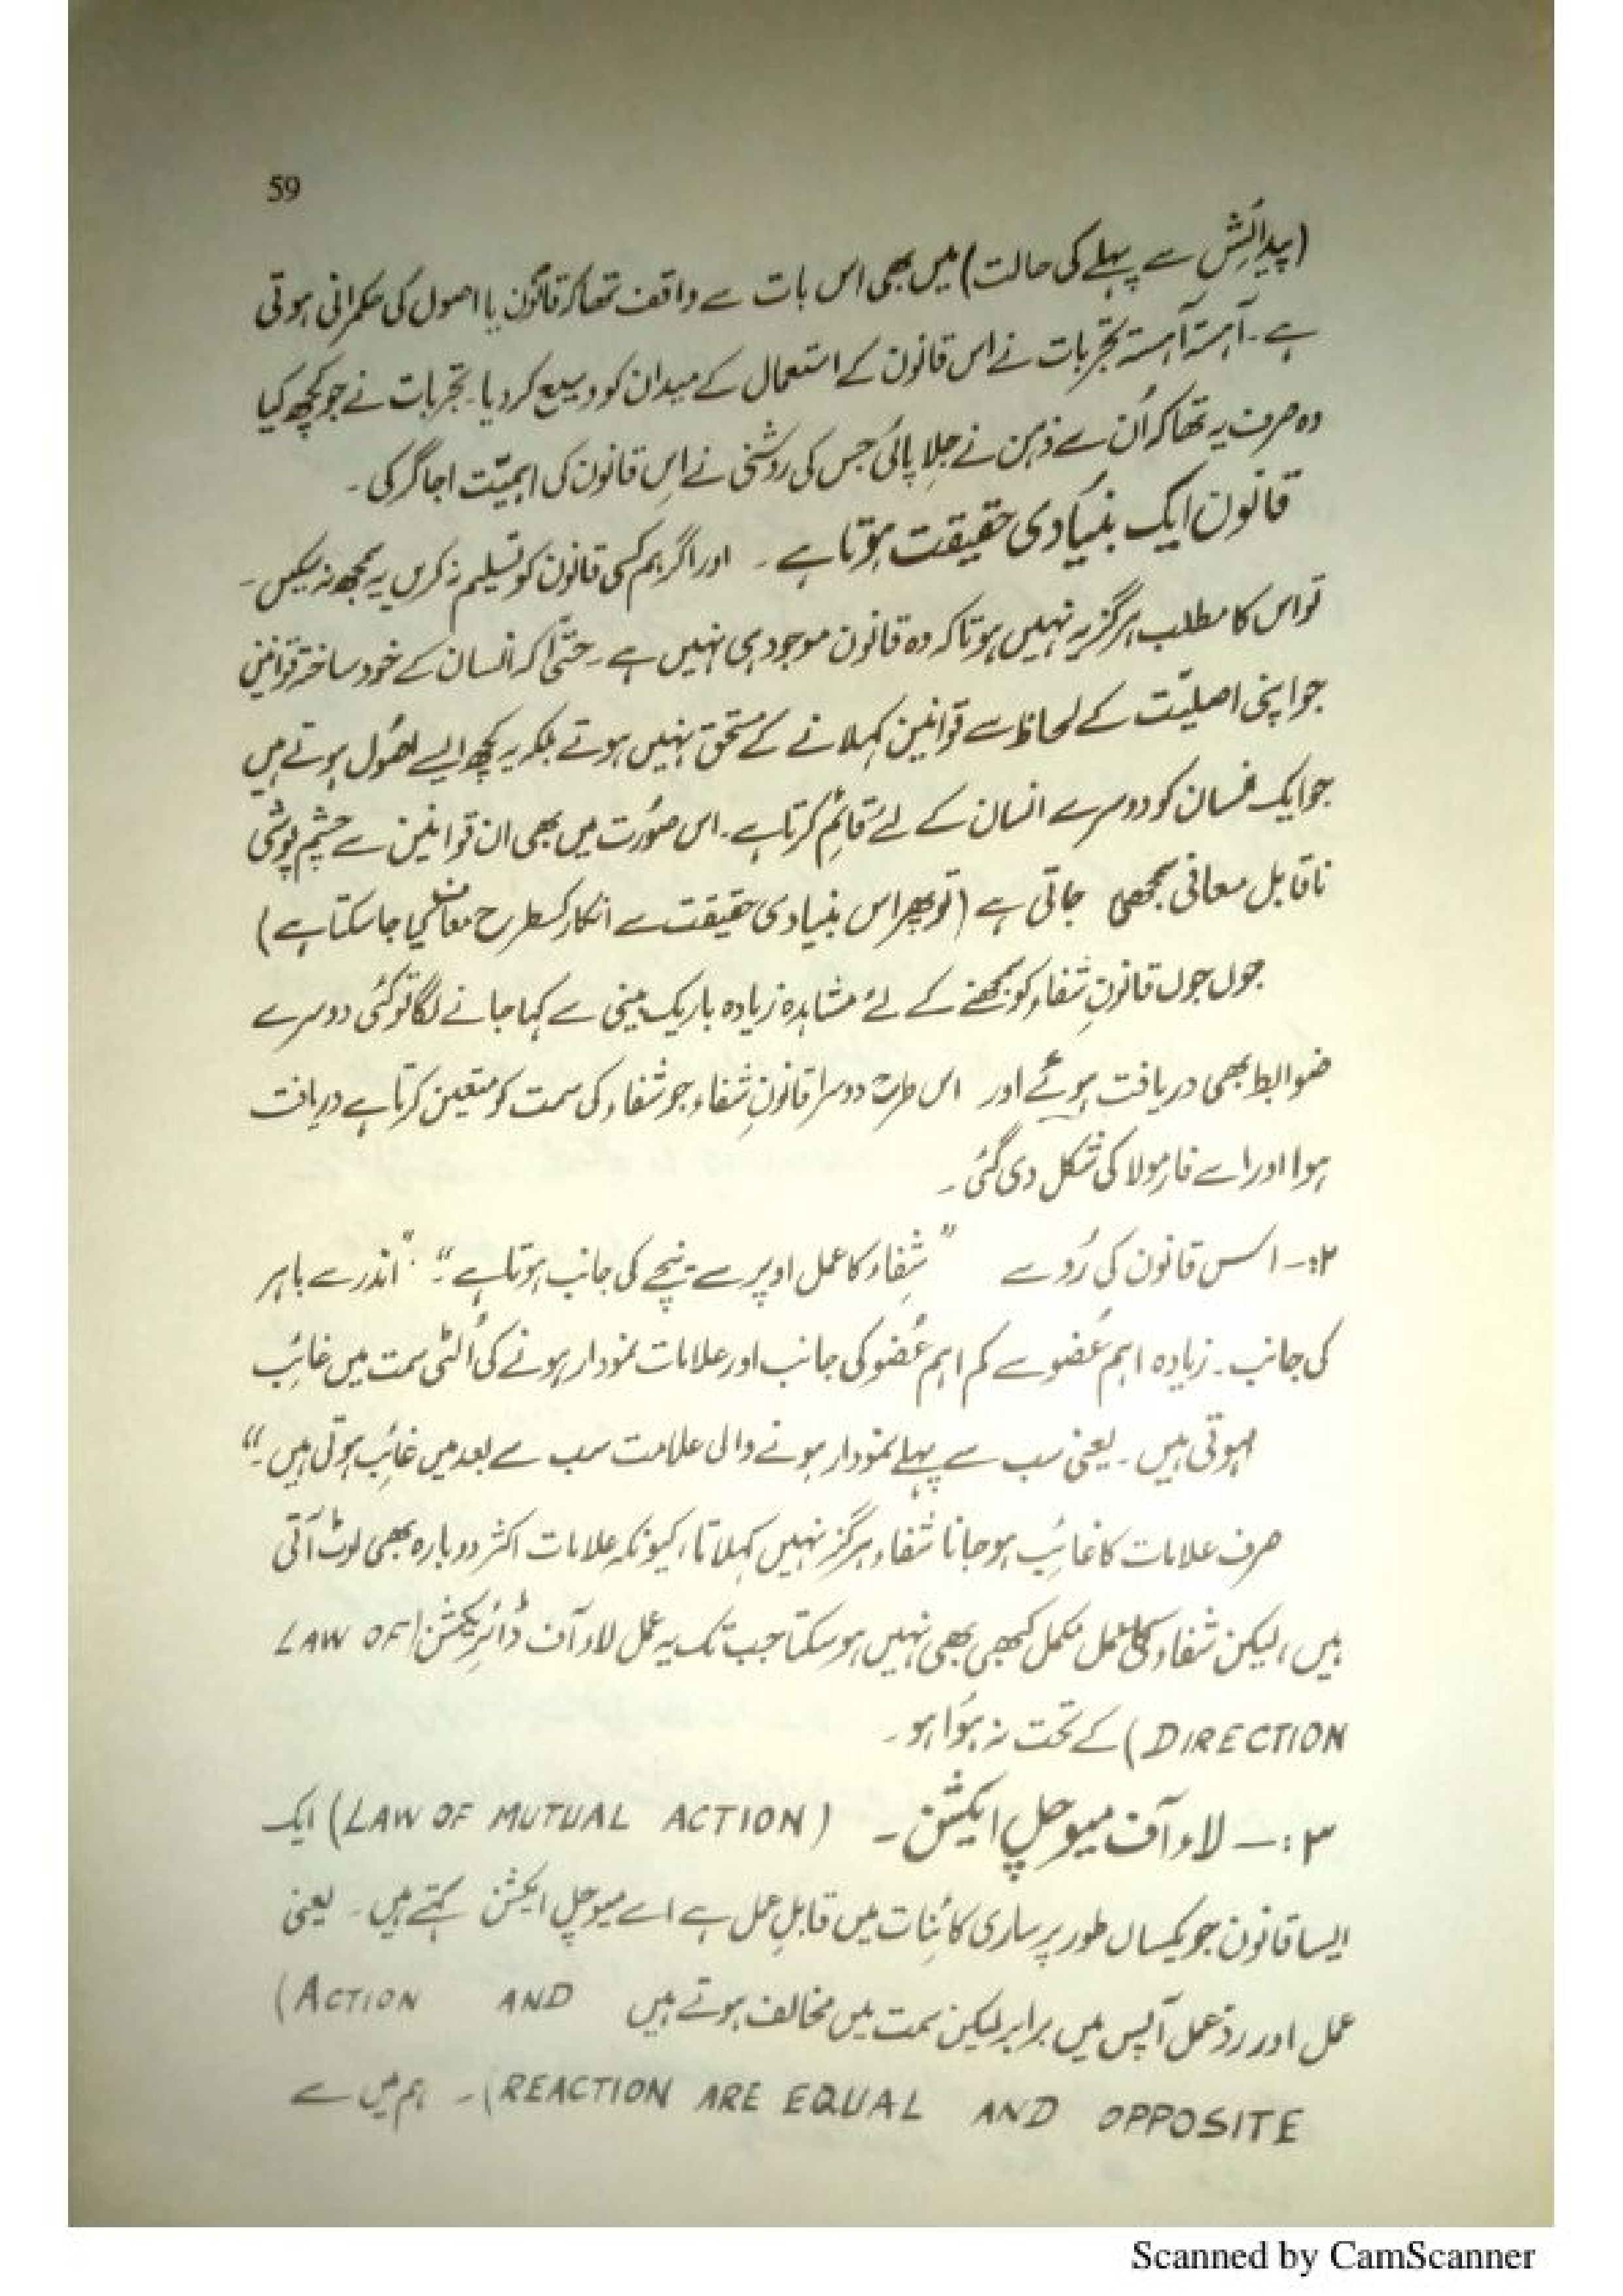 59
(پیدائش سے پہلے کی حالت) میں بھی اس بات سے واقف تھا کہ قانون یا اصول کی حکمرانی ہوتی
ہے۔ آہستہ آہستہ تجربات نے اس قانون کے استعمال کے میدان کو وسیع کر دیا۔ تجربات نے جو کچھ کیا
وہ صرف یہ تھا کہ اُن سے ذہن نے جِلا پائی جس کی روشنی نے اِس قانون کی اہمیّت اجاگر کی۔
قانون ایک بنیادی حقیقت ہوتا ہے۔ اور اگر ہم کسی قانون کو تسلیم نہ کریں یہ سمجھ نہ سکیں۔
تو اس کا مطلب ہرگز یہ نہیں ہوتا کہ وہ قانون موجود ہی نہیں ہے۔ حتّٰی کہ انسان کے خود ساختہ قوانین
جو اپنی اصلیّت کے لحاظ سے قوانین کہلانے کے مستحق نہیں ہوتے بلکہ یہ کچھ ایسے اصُول ہوتے ہیں
جو ایک انسان کو دوسرے انسان کے لئے قائم کرتا ہے۔ اس صوُرت میں بھی ان قوانین سے چشم پوشی
ناقابل معافی سمجھی جاتی ہے (تو پھر اس بنیادی حقیقت سے انکار کسطرح معاف کیا جا سکتا ہے)
جوں جوں قانونِ شفاء کو سمجھنے کے لئے مشاہدہ زیادہ باریک بینی سے کہا جانے لگا تو کئی دوسرے
ضوابط بھی دریافت ہوئے اور اس طرح دوسرا قانونِ شفاء جو شفاء کی سمت کو متعین کرتا ہے دریافت
ہوا اور اسے فارمولا کی شکل دی گئی۔
۲:۔ اس قانون کی رُو سے "شِفاء کا عمل اوپر سے نیچے کی جانب ہوتا ہے۔" "اندر سے باہر
کی جانب۔ زیادہ اہم عُضو سے کم اہم عُضو کی جانب اور علامات نمودار ہونے کی اُلٹی سمت میں غائب
ہوتی ہیں۔ یعنی سب سے پہلے نمودار ہونے والی علامت سب سے بعد میں غائب ہوتی ہیں۔"
صرف علامات کا غائب ہو جانا شفاء ہرگز نہیں کہلاتا، کیونکہ علامات اکثر دوبارہ بھی لوٹ آتی
ہیں، لیکن شفاء کا عمل مکمل کبھی بھی نہیں ہو سکتا جب تک یہ عمل لاء آف ڈائریکشن (LAW OF
DIRECTION) کے تحت نہ ہوُا ہو۔
۳:۔ لاء آف میوچل ایکشن۔ (LAW OF MUTUAL ACTION) ایک
ایسا قانون جو یکساں طور پر ساری کائنات میں قابلِ عمل ہے اسے میوچل ایکشن کہتے ہیں۔ یعنی
عمل اور ردِ عمل آپس میں برابر لیکن سمت میں مخالف ہوتے ہیں (ACTION AND
REACTION ARE EQUAL AND OPPOSITE)۔ ہم میں سے
Scanned by CamScanner